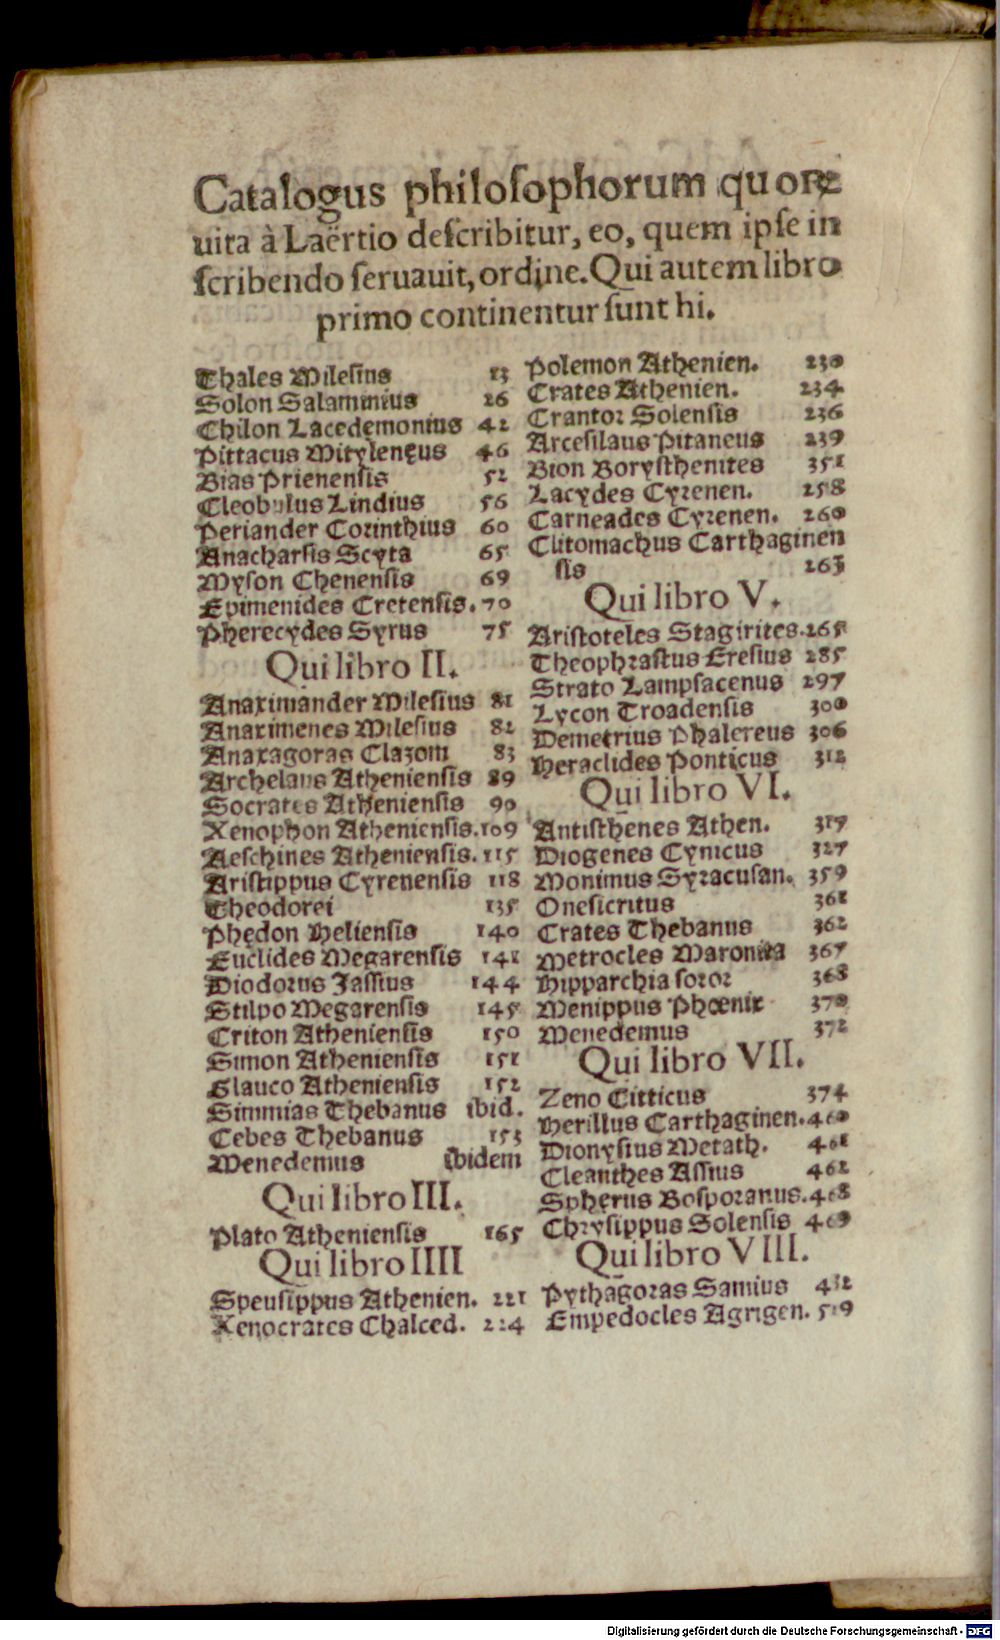 Catalogus philoſophorum quorꝝ
uita à Laërtio deſcribitur, eo, quem ipſe in
ſcribendo ſeruauit, ordine. Qui autem libro
primo continentur ſunt hi.
Thales Mileſius 13
Solon Salaminius 26
Chilon Lacedemonius 42
Pittacus Mitylenęus 46
Bias Prienenſis 52
Cleobulus Lindius 56
Periander Corinthius 60
Anacharſis Scyta 65
Myſon Chenenſis 69
Epimenides Cretenſis. 70
Pherecydes Syrus 75
Qui libro II.
Anaximander Mileſius 81
Anaximenes Mileſius 82
Anaxagoras Clazom 83
Archelaus Athenienſis 89
Socrates Athenienſis 90
Xenophon Athenienſis. 109
Aeſchines Athenienſis. 115
Ariſtippus Cyrenenſis 118
Theodorei 135
Phędon Helienſis 140
Euclides Megarenſis 141
Diodorus Jaſſius 144
Stilpo Megarenſis 145
Criton Athenienſis 150
Simon Athenienſis 151
Glauco Athenienſis 152
Simmias Thebanus ibid.
Cebes Thebanus 153
Menedemus ibidem
Qui libro III.
Plato Athenienſis 165
Qui libro IIII
Speuſippus Athenien. 221
Xenocrates Chalced. 224
Polemon Athenien. 230
Crates Athenien. 234
Crantor Solenſis 236
Arceſilaus Pitaneus 239
Bion Boryſthenites 351
Lacydes Cyrenen. 258
Carneades Cyrenen. 260
Clitomachus Carthaginen
ſis 263
Qui libro V.
Ariſtoteles Stagirites. 265
Theophraſtus Ereſius 285
Strato Lampſacenus 297
Lycon Troadenſis 300
Demetrius Phalereus 306
Heraclides Ponticus 312
Qui libro VI.
Antiſthenes Athen. 317
Diogenes Cynicus 327
Monimus Syracuſan. 359
Oneſicritus 361
Crates Thebanus 362
Metrocles Maronita 367
Hipparchia ſoror 368
Menippus Phœnix 370
Menedemus 372
Qui libro VII.
Zeno Citticus 374
Herillus Carthaginen. 460
Dionyſius Metath. 461
Cleanthes Aſſius 462
Spherus Boſporanus. 468
Chryſippus Solenſis 469
Qui libro VIII.
Pythagoras Samius
Empedocles Agrigen. 519
Digitalisierung gefördert durch die Deutsche Forschungsgemeinschaft - DFG